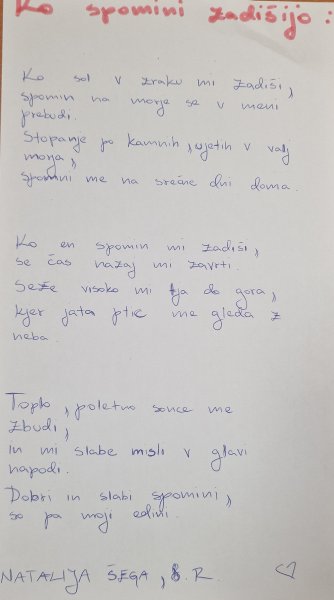 Ko spomini zadišijo:
Ko sol v zraku mi zadiši,
spomin na morje se v meni
prebudi.
Stopanje po kamnih, ujetih v valj
morja,
spomni me na srečne dni doma.
Ko en spomin mi zadiši,
se čas nazaj mi zavrti.
Seže visoko mi tja do gora,
kjer jata ptic me gleda z
neba.
Toplo, poletno sonce me
zbudi,
in mi slabe misli v glavi
napodi.
Dobri in slabi spomini,
so pa moji edini.
NATALIJA ŠEGA, 8. R.